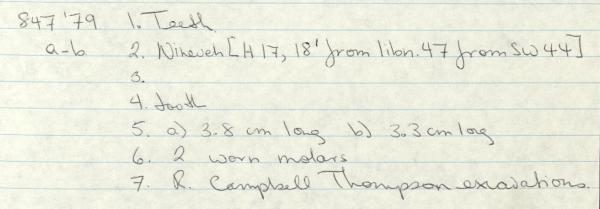 847'79 1. Teeth
a-b 2. Nineveh [H17, 18' from libn. 47 from SW 44]
3.
4. tooth
5. a) 3.8 cm long b) 3.3 cm long
6. 2 worn molars
7. R. Campbell Thompson excavations.